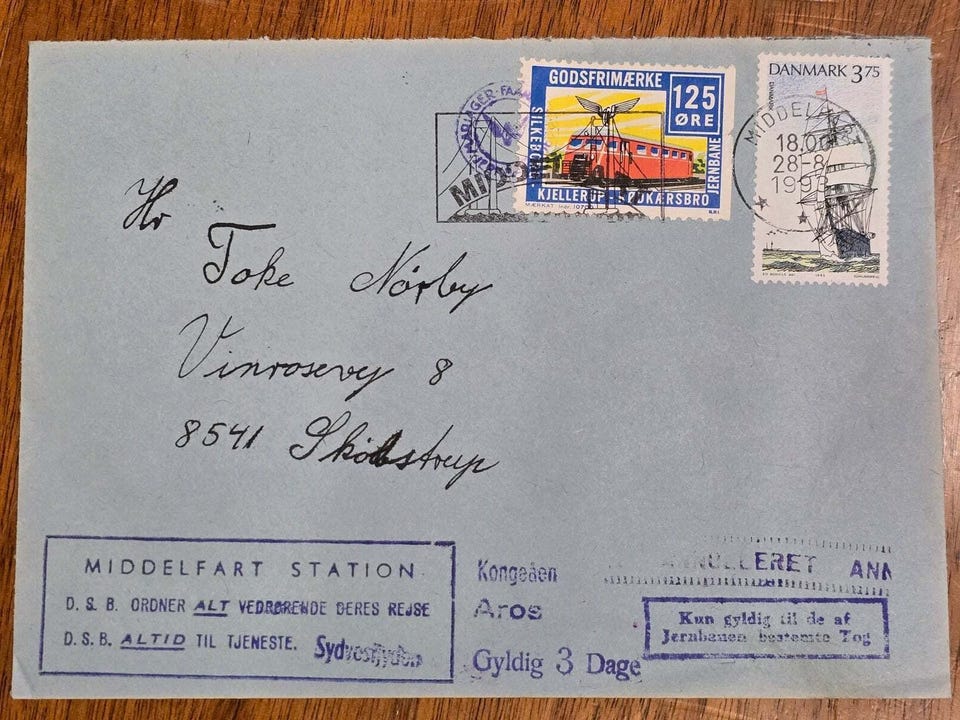 GODSFRIMÆRKE
125
ØRE
SILKEBORG
KJELLERUP-RØDKÆRSBRO
JERNBANE
DANMARK 3.75
18.00
28-8
1993
Hr
Toke Nørby
Vinrosevej 8
8541 Skødstrup
MIDDELFART STATION
D.S.B. ORDNER ALT VEDRØRENDE DERES REJSE
D.S.B. ALTID TIL TJENESTE.
Sydvestjyden
Kongeåen
Aros
Gyldig 3 Dage
ANNULLERET ANN
Kun gyldig til de af
Jernbanen bestemte Tog